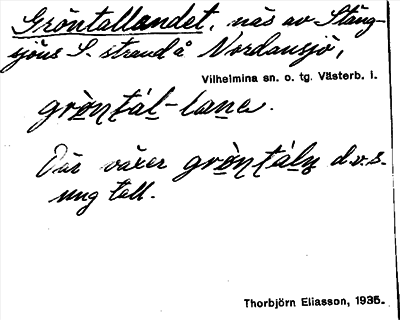 Gröntallandet, näs av Stång-
sjöns S. strand å Nordansjö,
Vilhelmina sn. o. tg. Västerb. l.
grò̀n̠tál-lane.
Där växer gròn̠táln̥ d.v.s.
ung tall.
Thorbjörn Eliasson, 1935.